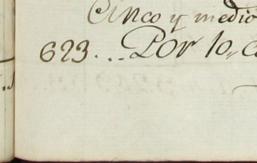 Cinco y medio
623... Por lo, c